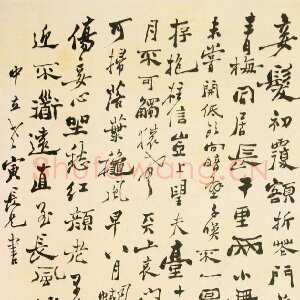 妾髮初覆額折花門
青梅同居長干里兩小無
未嘗開低頭向暗壁千喚不一回
存抱柱信豈望夫臺十
月不可觸猿聲天上哀門
可掃落葉秋風早八月
傷妾心坐愁紅顏老早
近不道遠直至長風
書